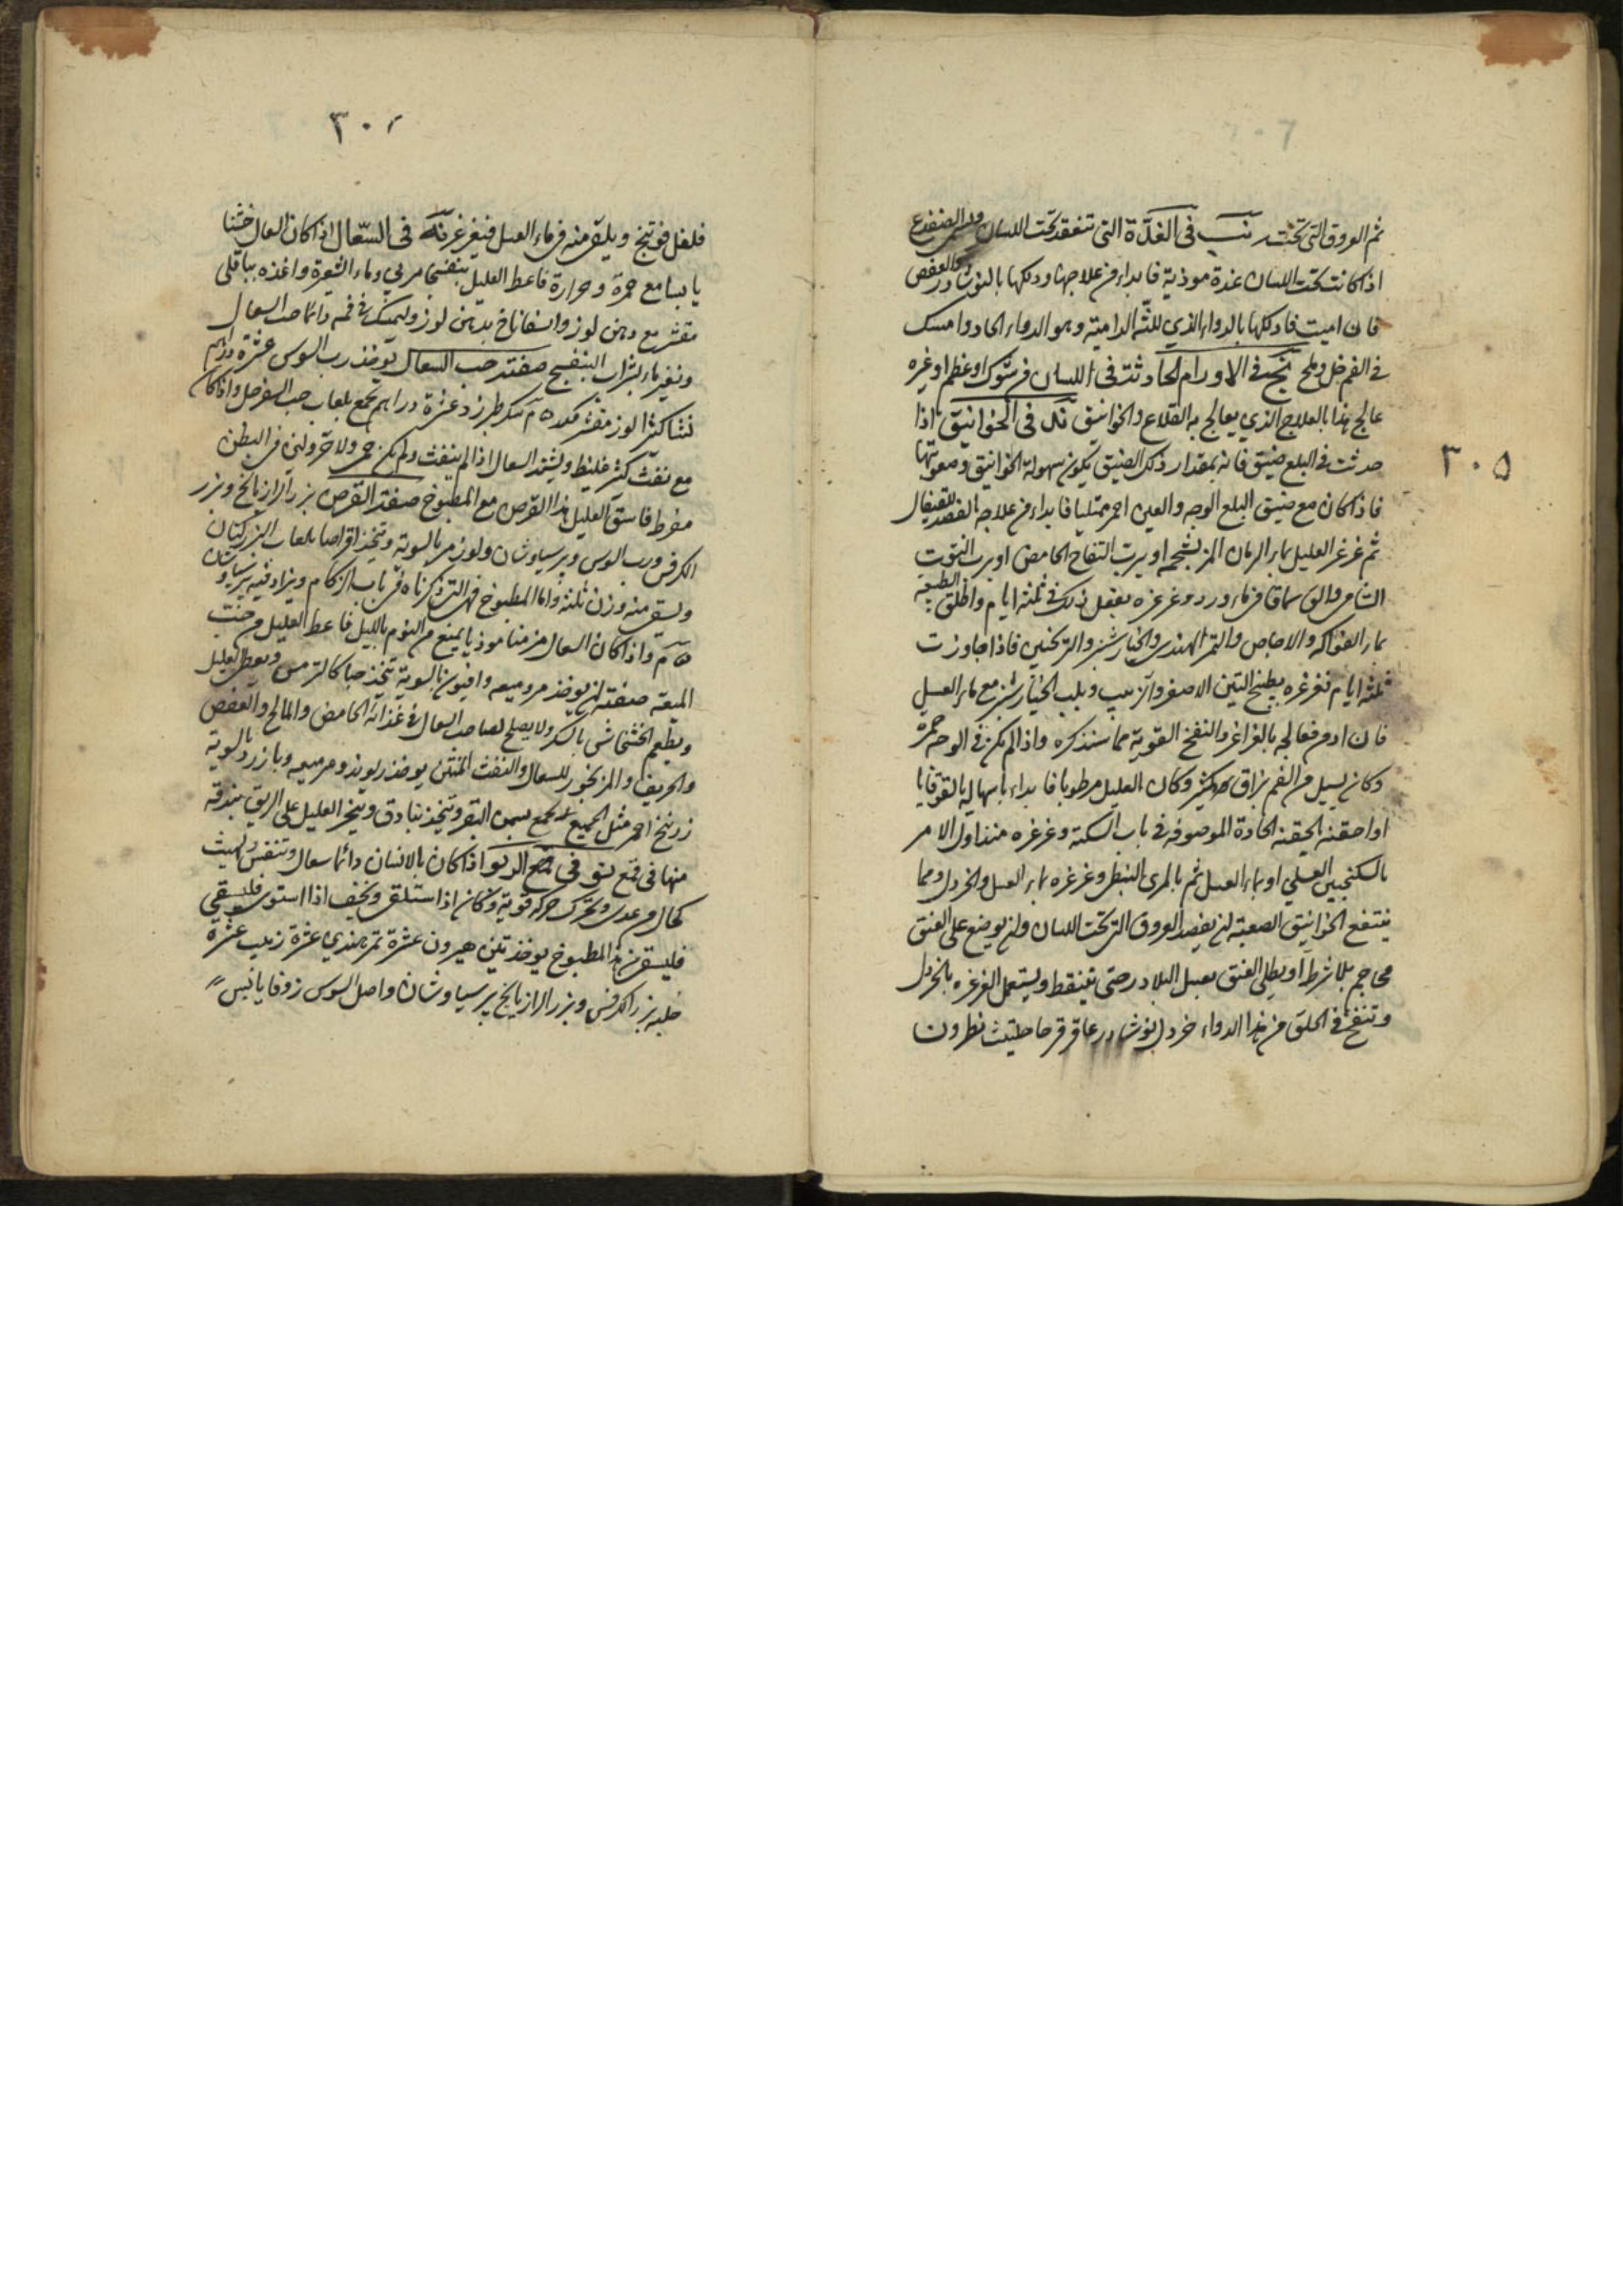 ٣٠٥
ثم العروق التي تحت في الغدة التي تنعقد تحت اللسان الضفدع
اذا كانت تحت اللسان غدة موذية فابداء من علاجها ودلكها بالنوشادر والعفص
فان اميت فادلكها بالدواء الذي للثة الدامية وهو الدواء الحاد وامسك
في الفم خل وملح في الاورام الحادثة في اللسان من شوك او عظم او غيره
عالج هذا بالعلاج الذي يعالج به القلاع والخوانيق في الخوانيق اذا
حدثت في البلع ضيق فانه بمقدار ذلك الضيق يكون سهولة الخوانيق وصعوبتها
فاذا كان مع ضيق البلع الوجه والعين احمر ممتليا فابداء من علاجه بالفصد للقيفال
ثم غرغر العليل بماء الرمان المز بشحمه او برب التفاح الحامض او برب التوت
الشامي والق سماقا في ماء ورد وغرغره يفعل ذلك في ثلثة ايام واطلق الطبيعة
بماء الفواكه والاجاص والتمر الهندي والخيار شنبر والترنجبين فاذا جاوزت
ثلثة ايام فغرغره بطبيخ التين الاصفر والزبيب وبلب الخيار شنبر مع ماء العسل
فان ادمن فعالجه بالغراغر والنفخ القوية مما سنذكره واذا لم يكن في الوجه حمرة
وكان يسيل من الفم بزاق كثير وكان العليل مرطوبا فابداء باسهاله بالقوقايا
او احقنه الحقنة الحادة الموصوفة في باب السكتة وغرغره منذ اول الامر
بالسكنجبين العسلي او بماء العسل ثم بالمري النبطي وغرغره بماء العسل والخردل ومما
ينتفع الخوانيق الصعبة ان يفصد العروق التي تحت اللسان وان يوضع على العنق
محاجم بلا شرط او يطلى العنق بعسل البلادر حتى يتنفط ويستعمل الغرغره بالخردل
وتنفخ في الحلق من هذا الدواء خردل نوشادر عاقرقرحا حلتيت نطرون
فلفل فوتنج ويلقى منه في ماء العسل فيغرغر به في السعال اذا كان السعال خشنا
يابسا مع حمرة وحرارة فاعط العليل بنفسجا مربي وماء الشعيرة واغذه بباقلي
مقشر مع دهن لوز واسفاناخ بدهن لوز وليمسك في فمه دائما حب السعال
وتغير ماءه بشراب البنفسج صفة حب السعال يوخذ رب السوس عشرة دراهم
نشا كثيرا لوز مقشر سكر طبرزد عشرة دراهم يجمع بلعاب حب السفرجل واذا كان
مع نفث كثير غليظ ويشتد السعال اذا لم ينفث ولم يكن حمى ولا حر ولين في البطن
مفرط فاسق العليل هذا القرص مع المطبوخ صفة القرص بزر الرازيانج وبزر
الكرفس ورب السوس وبرسياوشان ولوز مر بالسوية وتتخذ اقراصا بلعاب البزر كتان
ويسقى منه وزن ثلثة واما المطبوخ فهو التي ذكرناه في باب الزكام ويزاد فيه برسياوشان
واذا كان السعال مزمنا موذيا يمنع من النوم بالليل فاعط العليل من حب
الميعة صفته ان يوخذ مر وميعه وافيون بالسوية يتخذ حبا كالترمس ويعطى العليل
ويطعم الخشخاش بالسكر ولا يصلح لصاحب السعال في غذائه الحامض والمالح والعفص
والحريف والمز بخور للسعال والنفث المنتن يوخذ زراوند ومر ميعه وبازرد بالسوية
زرنيخ احمر مثل الجميع يجمع بسمن البقر ويتخذ بنادق ويبخر العليل على الريق ببندقة
منها في قمع في الربو اذا كان بالانسان دائما سعال وتنفس ولهيث
كحال من عدى وتحرك حركة قوية وكان اذا استلقى ويخف اذا استوى
فليسقى من هذا المطبوخ يوخذ تين هيرون عشرة تمر هندي عشرة زبيب عشرة
حلبه بزر الكرفس وبزر الرازيانج برسياوشان واصل السوس زوفا يابس